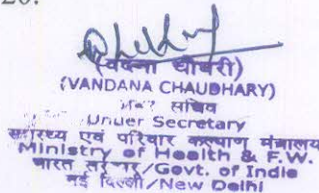 20.
(वंदना चौधरी)
(VANDANA CHAUDHARY)
सचिव
Under Secretary
स्वास्थ्य एवं परिवार कल्याण मंत्रालय
Ministry of Health & F.W.
भारत सरकार/Govt. of India
नई दिल्ली/New Delhi